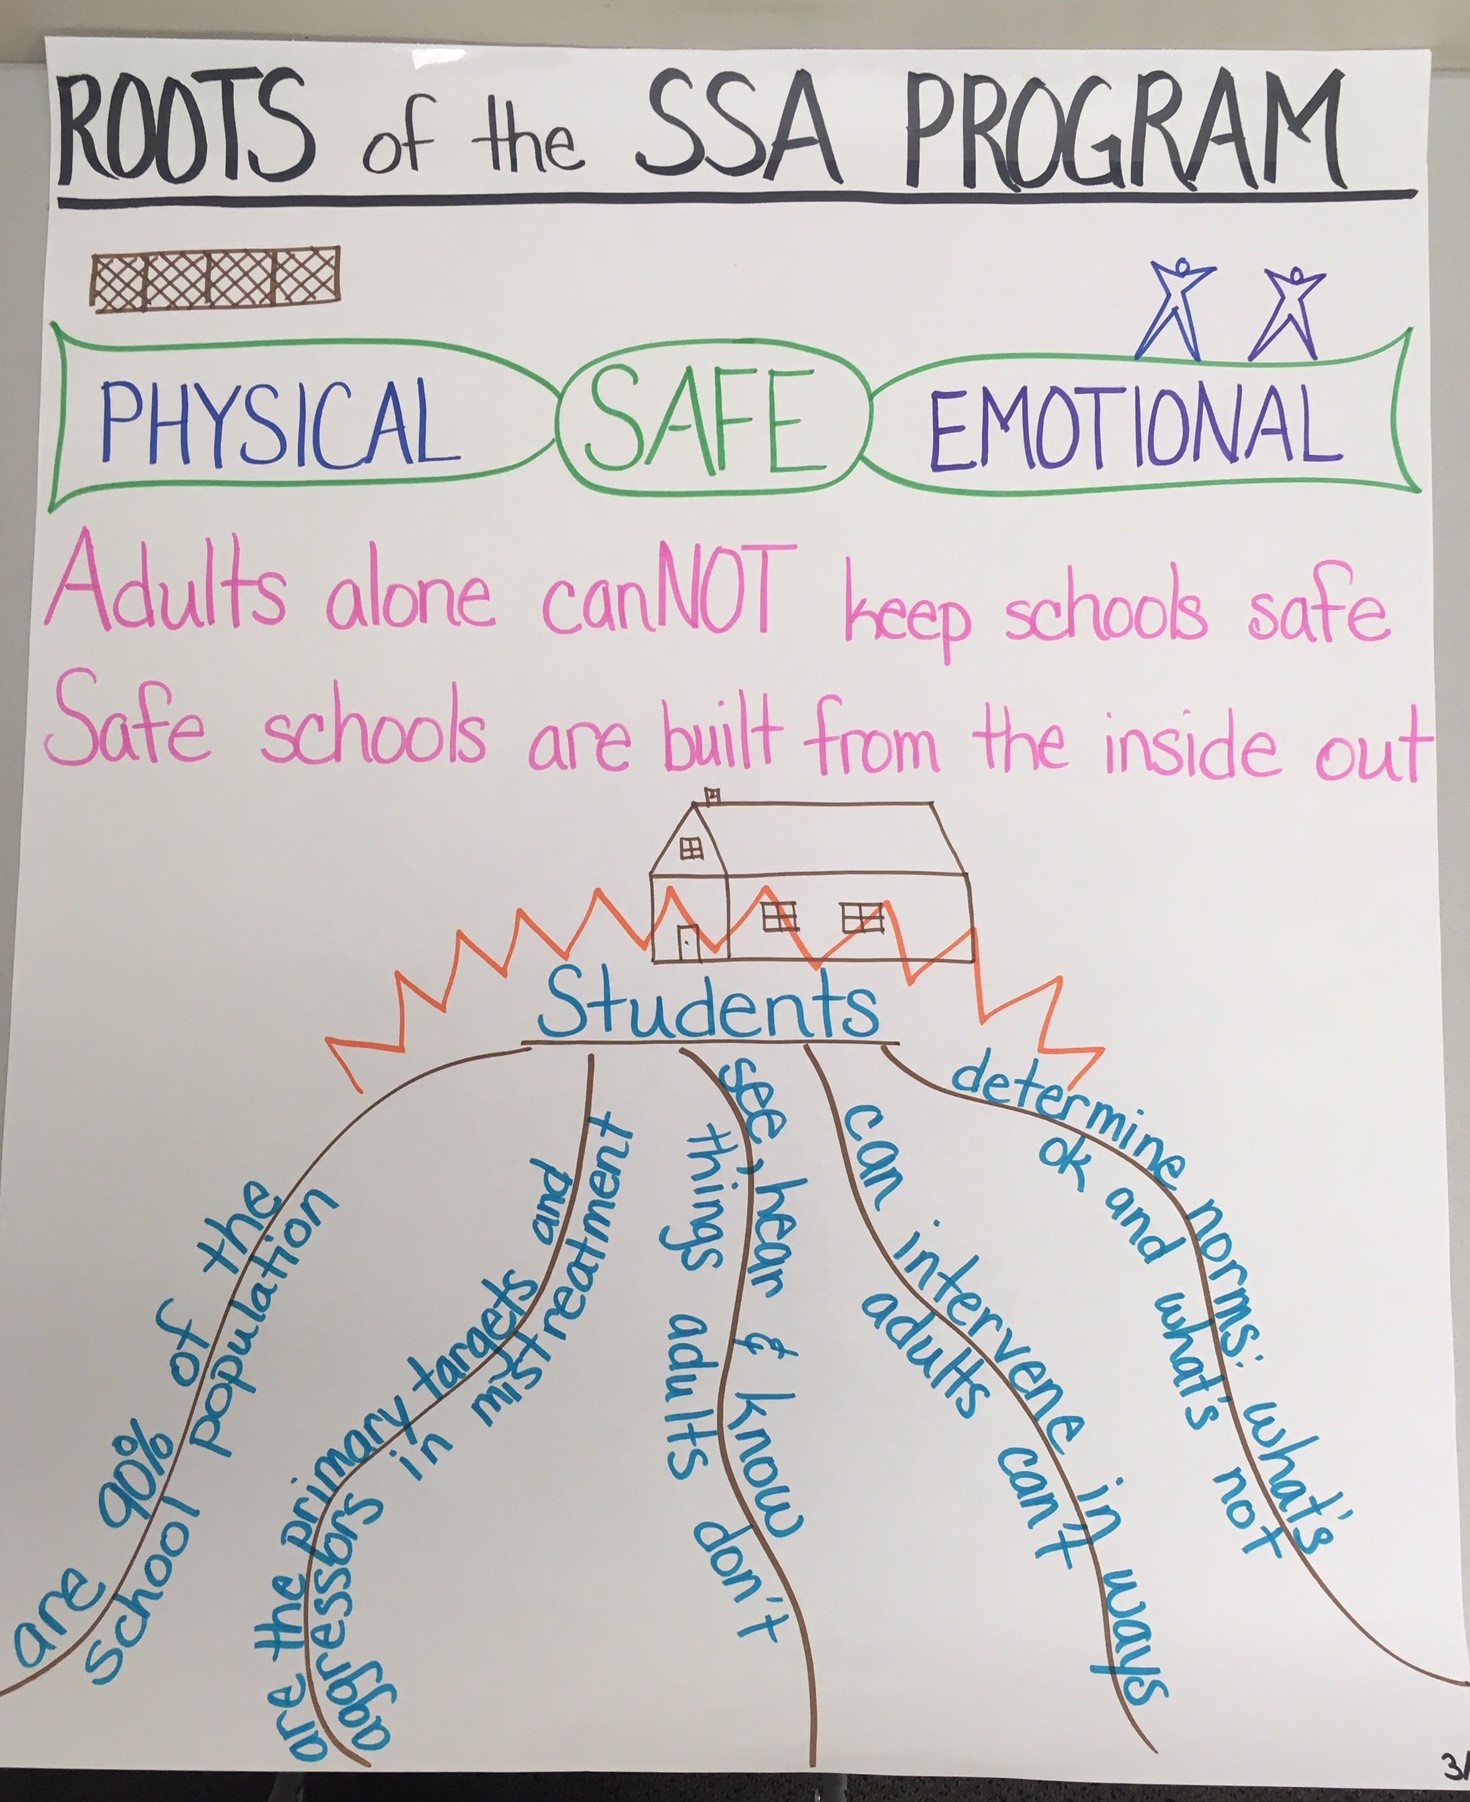 ROOTS of the SSA PROGRAM
PHYSICAL SAFE EMOTIONAL
Adults alone canNOT keep schools safe
Safe schools are built from the inside out
Students
are 90% of the
school population
are the primary targets and
aggressors in mistreatment
see, hear & know
things adults don't
can intervene in ways
adults can't
determine norms: what's
ok and what's not
3/